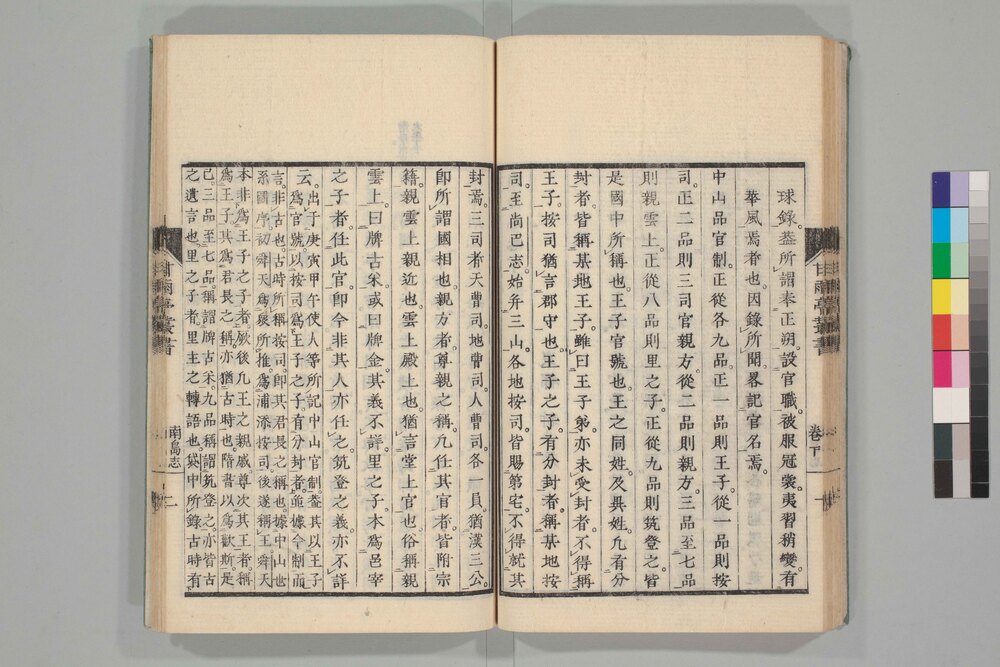 球錄。蓋所謂奉正朔。設官職。被服冠裳。夷習稍變。有
華風焉者也。因錄所聞。畧記官名焉。
中山品官制。正從各九品。正一品則王子。從一品則按
司。正二品則三司官親方。從二品則親方。三品至七品
則親雲上。正從八品則里之子。正從九品則筑登之。皆
是國中所稱也。王子官號也。王之同姓。及異姓。凡有分
封者。皆稱某地王子。雖曰王子弟。亦未受封者。不得稱
王子。按司猶言郡守也。王子之子。有分封者。稱某地按
司。至尚巴志。始并三山。各地按司。皆賜第宅。不得就其
封焉。三司者天曹司。地曹司。人曹司。各一員。猶漢三公。
卽所謂國相也。親方者尊親之稱。凡任其官者。皆附宗
籍。親雲上。親近也。雲上殿上也。猶言堂上官也。俗稱親
雲上曰牌古米。或曰牌金。其義不詳。里之子。本爲邑宰
之子者。任此官。卽今非其人亦任之。筑登之義亦不詳
云。出于庚寅甲午使人等所記中山官制。蓋其以王子
爲官號。以按司爲王子之子。有分封者。並據今制而
言。非古也。古時所稱按司。卽其君長之稱也。據中山世
系圖序。初舜天爲衆所推。爲浦添按司。後遂稱王。舜天
本非爲王子之子者。厥後凡王之親戚。尊次其王者。稱
爲王子。其爲君長之稱。亦猶古時也。隋書以爲歡斯。是
已。三品至七品。稱謂牌古米。九品稱謂筑登之。亦皆古
之遺言也。里之子者。里主之轉語也。袋中所錄古時有
甘雨亭叢書
卷下
一
甘雨亭叢書
南島志
二